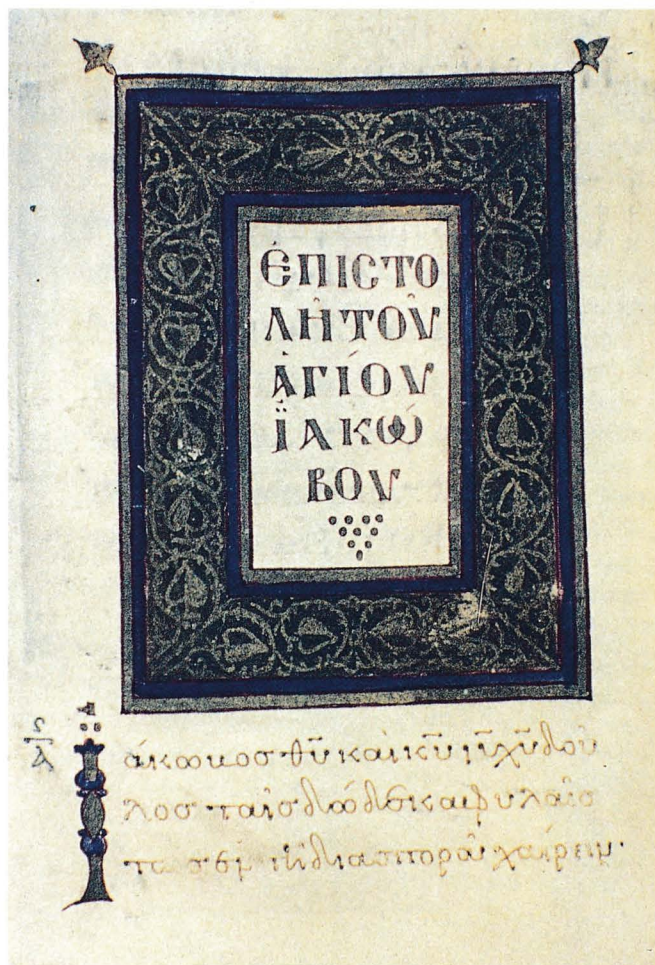 ἘΠΙΣΤΟ
ΛΗ ΤΟΥ
ἉΓΊΟΥ
ἸΑΚΏ
ΒΟΥ
Ἰάκωβος θῡ καὶ κῡ ιῡ χῡ δοῦ
λος ταῖς δώδεκα φυλαῖς
ταῖς ἐν τῇ διασπορᾷ χαίρειν·